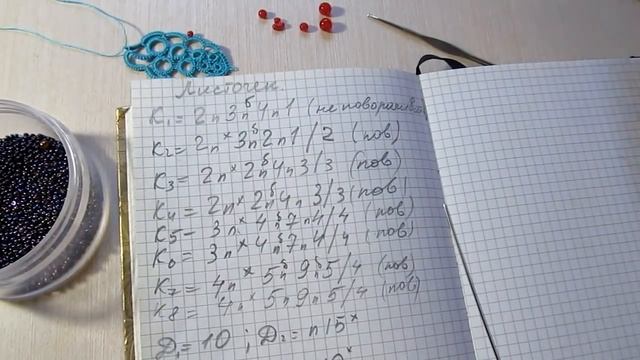 Листочек.
К1 = 2п3п̅б4п1 (не поворачиваем
К2 = 2п×3п̅б2п1/2 (пов)
К3 = 2п×2п̅б4п3/3 (пов)
К4 = 2п×2п̅б4п3/3 (пов)
К5 - 3п×4п̅б7п4/4 (пов)
К6 = 3п×4п̅б7п4/4 (пов)
К7 = 4п×5п̅б9п̅б5/4 (пов)
К8 = 4п×5п9п5/4 (пов)
Д1 = 10 ; Д2 = п/5×